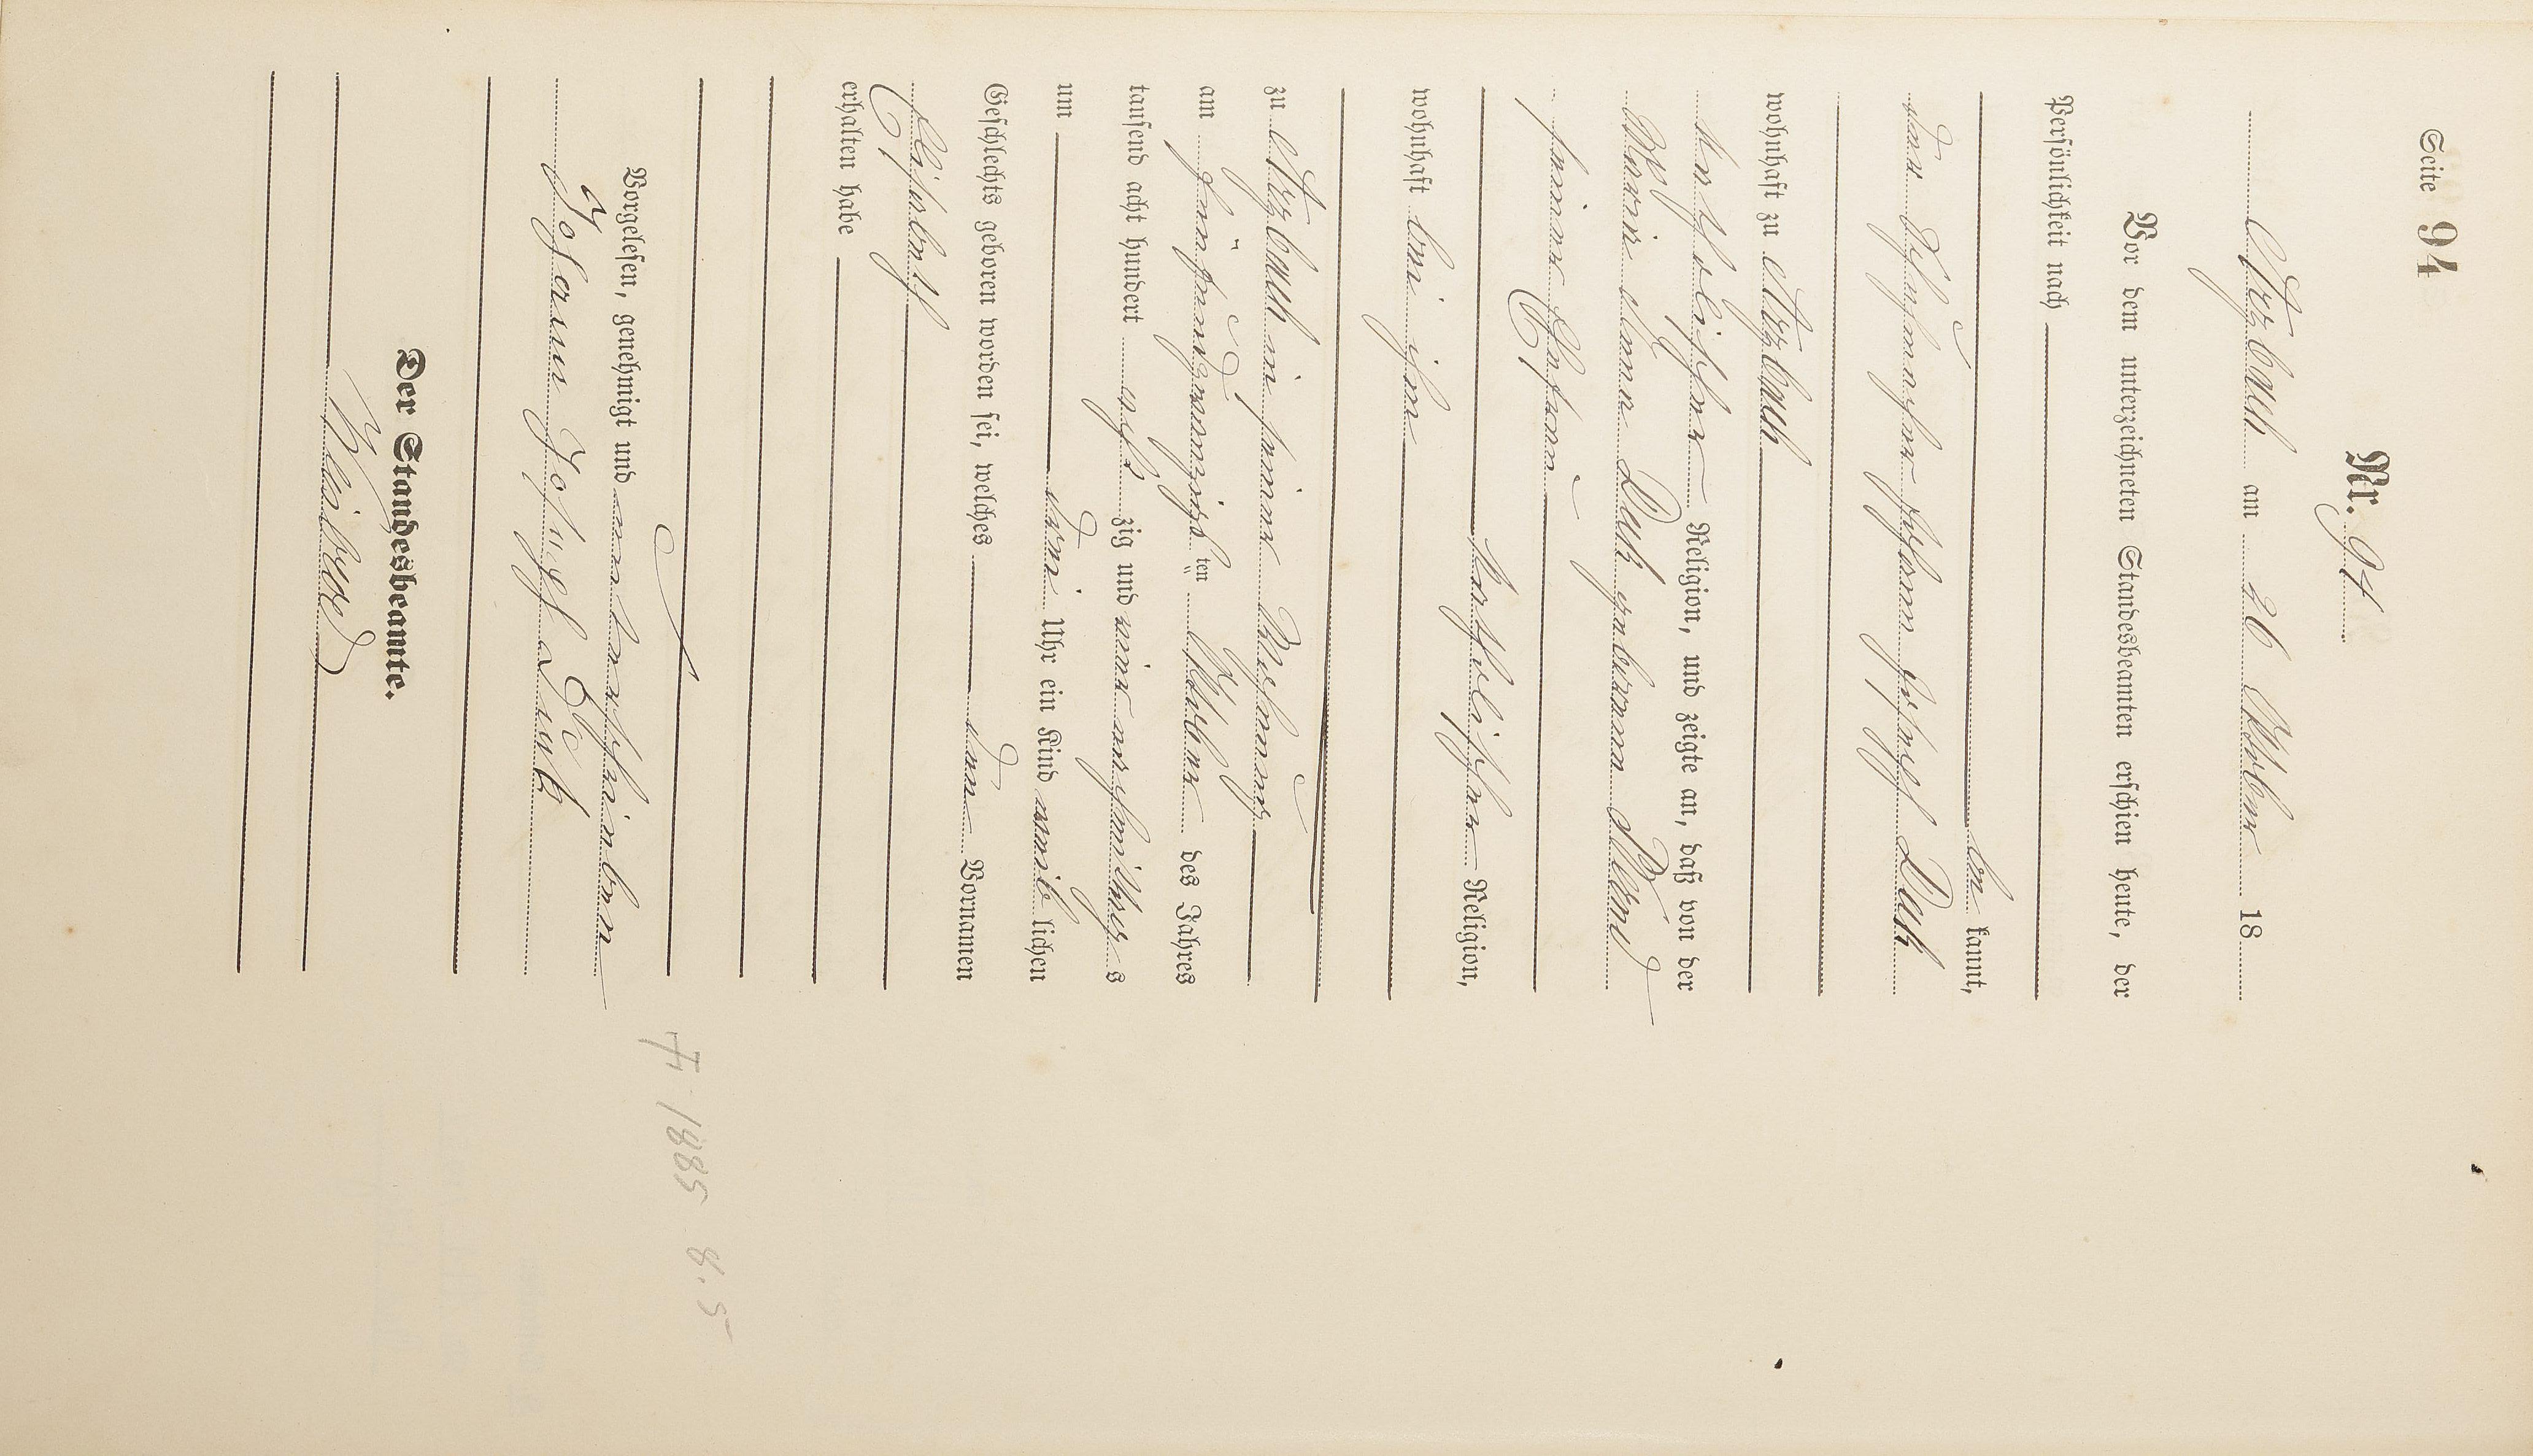 Seite 94
Nr. 94
Atzbach am 26 Oktober 18
Vor dem unterzeichneten Standesbeamten erschien heute, der
Persönlichkeit nach
be kannt,
der Johann Joseph Duk
wohnhaft zu Atzbach
katholischer Religion, und zeigte an, daß von der
Maria Anna Duk geborenen
seiner Ehefrau
katholischer Religion,
wohnhaft bei ihm
zu Atzbach in seiner Wohnung
am fünfundzwanzigsten Oktober des Jahres
tausend acht hundert acht zig und vier nachmittags
um drei Uhr ein Kind weib lichen
Geschlechts geboren worden sei, welches den Vornamen
Elisabeth
erhalten habe
Vorgelesen, genehmigt und unterschrieben
Johann Joseph Duk
Der Standesbeamte.
† 1885 8.5